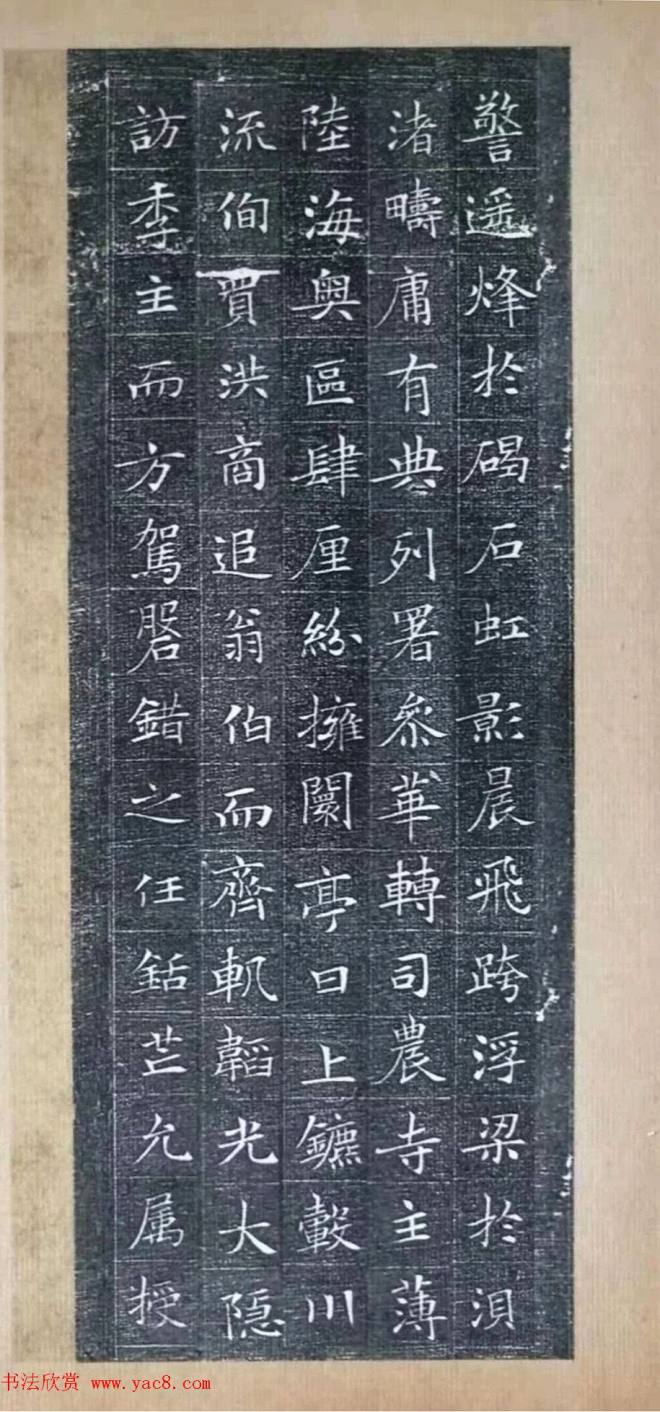 警遥烽於碣石虹影晨飛跨浮梁於浿
渚疇庸有典列署叅華轉司農寺主薄
陸海奥區肆厘紛擁闤亭日上鑣轂川
流徇賈洪商追翁伯而齊軌韜光大隱
訪季主而方駕盤錯之任銛芒允属授
书法欣赏 www.yac8.com